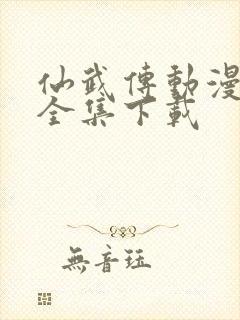 仙武傳動漫
全集下載
無音玨